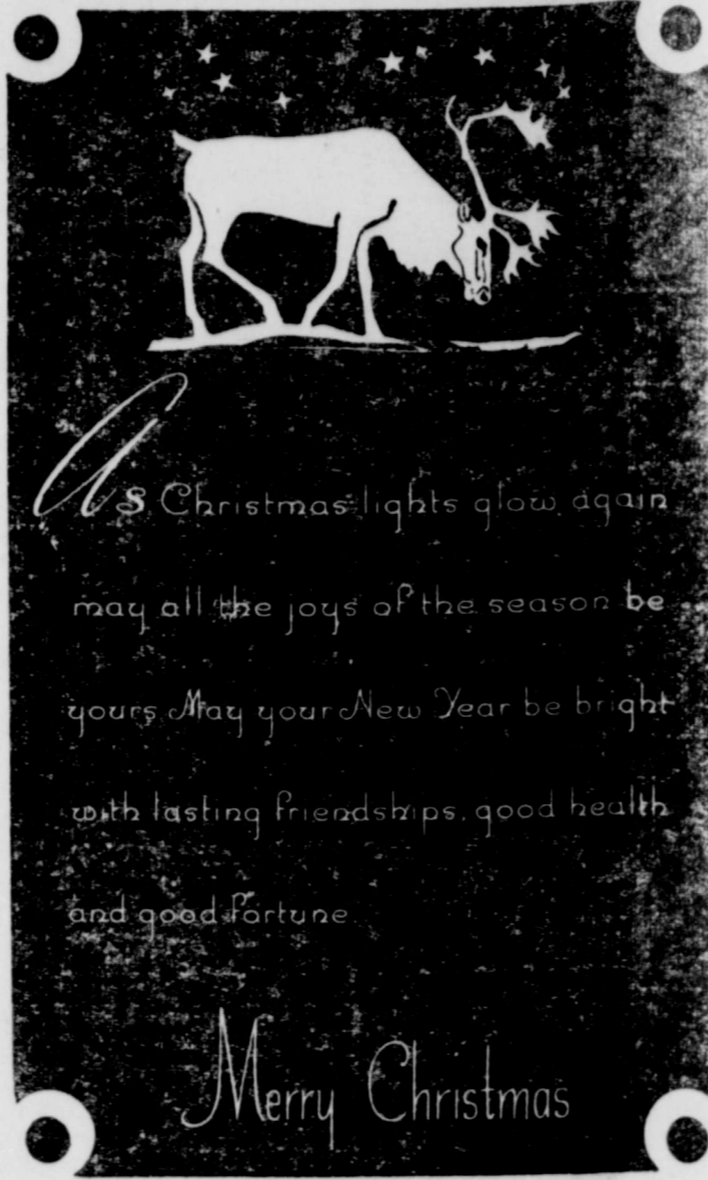 As Christmas lights glow again
may all the joys of the season be
yours May your New Year be bright
with lasting friendships, good health
and good fortune
Merry Christmas